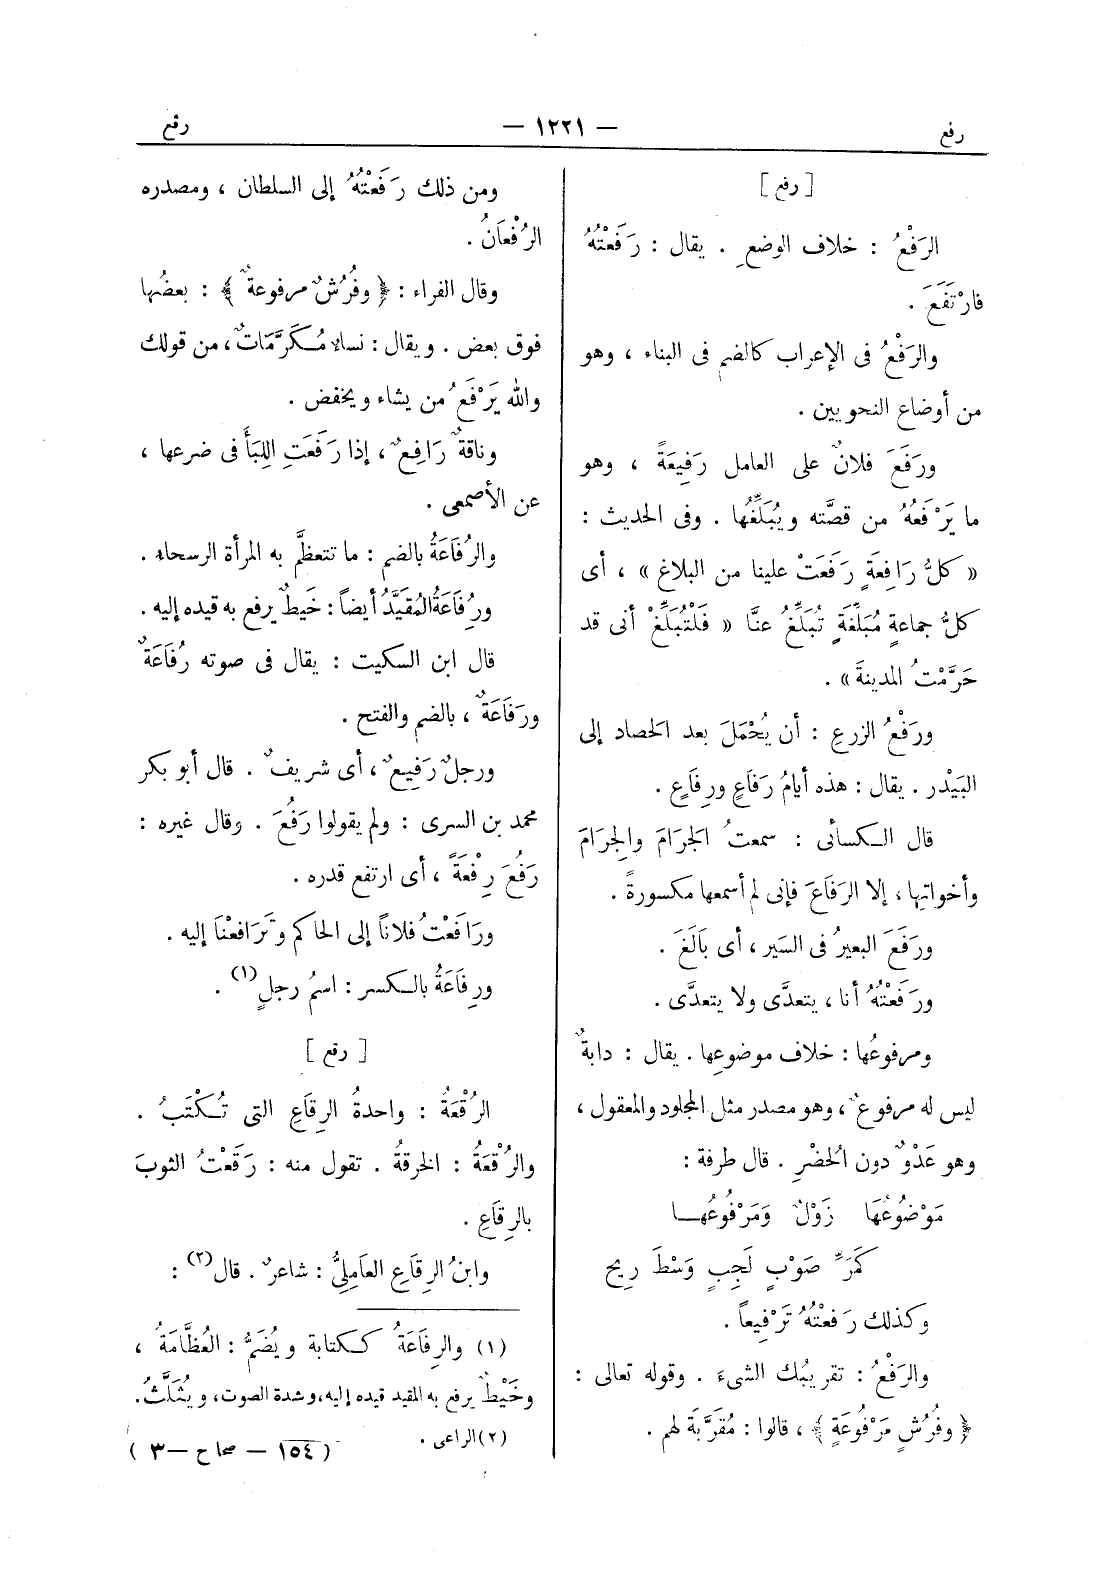 رفع
— ١٢٢١ —
رقع
[ رفع ]
الرَفْعُ : خلاف الوضعِ . يقال : رَفَعْتُهُ
فارْتَفَعَ .
والرَفْعُ فى الإعراب كالضم فى البناء ، وهو
من أوضاع النحويين .
ورَفَعَ فلانٌ على العامل رَفِيعَةً ، وهو
ما يَرْفَعُهُ من قصَّته ويُبَلِّغُها . وفى الحديث :
« كلُّ رَافِعَةٍ رَفَعَتْ علينا من البلاغ » ، أى
كلُّ جماعة مُبَلِّغَةٍ تُبَلِّغُ عنَّا « فَلْتُبَلِّغْ أنى قد
حَرَّمْتُ المدينةَ » .
ورَفْعُ الزرعِ : أن يُحْمَلَ بعد الحصاد إلى
البَيْدر . يقال : هذه أيامُ رَفَاعٍ ورِفَاعٍ .
قال الكسأئى : سمعتُ الجَرَامَ والجِرَامَ
وأخواتِها ، إلا الرَفَاعَ فإنى لم أسمعها مكسورةً .
ورَفَعَ البعيرُ فى السَير ، أى بَالَغَ .
ورَفَعْتُهُ أنا ، يتعدَّى ولا يتعدَّى .
ومرفوعُها : خلاف موضوعِها . يقال : دابةٌ
ليس له مرفوعٌ ، وهو مصدر مثل المجلود والمعقول ،
وهو عَدْوٌ دون الحُضْرِ . قال طرفة :
مَوْضُوعُهَا زَوْلٌ وَمَرْفُوعُها
كَمَرِّ صَوْبٍ لَجِبٍ وَسْطَ رِيح
وكذلك رَفَعْتُهُ تَرْفِيعاً .
والرَفْعُ : تقريبُك الشىءَ . وقوله تعالى :
﴿ وفُرُشٍ مَرْفُوعَةٍ ﴾ ، قالوا : مُقَرَّبَة لهم .
ومن ذلك رَفَعْتُهُ إلى السلطان ، ومصدره
الرُفْعَانُ .
وقال الفراء : ﴿ وفُرُشٌ مرفوعةٌ ﴾ : بعضُها
فوق بعض . ويقال : نساء مُكَرَّمَاتٌ ، من قولك
والله يَرْفَعُ من يشاء ويخفض .
وناقةٌ رَافِعٌ ، إذا رَفَعَتِ اللِبَأَ فى ضرعها ،
عن الأصمعى .
والرُفَاعَةُ بالضم : ما تتعظَّم به المرأة الرسحاء .
ورُفَاعَةُ المُقَيَّدُ أيضاً : خَيطٌ يرفع به قيده إليه .
قال ابن السكيت : يقال فى صوته رُفَاعَةٌ
ورَفَاعَةٌ ، بالضم والفتح .
ورجلٌ رَفِيعٌ ، أى شريفٌ . قال أبو بكر
محمد بن السرى : ولم يقولوا رَفُعَ . وقال غيره :
رَفُعَ رِفْعَةً ، أى ارتفع قدره .
ورَافَعْتُ فلاناً إلى الحاكم وتَرَافَعْنَا إليه .
ورِفَاعَةُ بالكسر : اسمُ رجلٍ (١) .
[ رقع ]
الرُقْعَةُ : واحدةُ الرِقَاعِ التى تُكْتَبُ .
والرُقْعَةُ : الخرقةُ . تقول منه : رَقَعْتُ الثوبَ
بالرِقَاعِ .
وابنُ الرِقَاعِ العَامِلِىُّ : شاعرٌ . قال (٢) :
(١) والرِفَاعَةُ ككتابة ويُضَمُّ : العُظَّامَةُ ،
وخَيْطٌ يرفع به المقيد قيده إليه ، وشدة الصوت ، ويُثَلَّثُ .
(٢) الراعى .
( ١٥٤ — صحاح — ٣ )